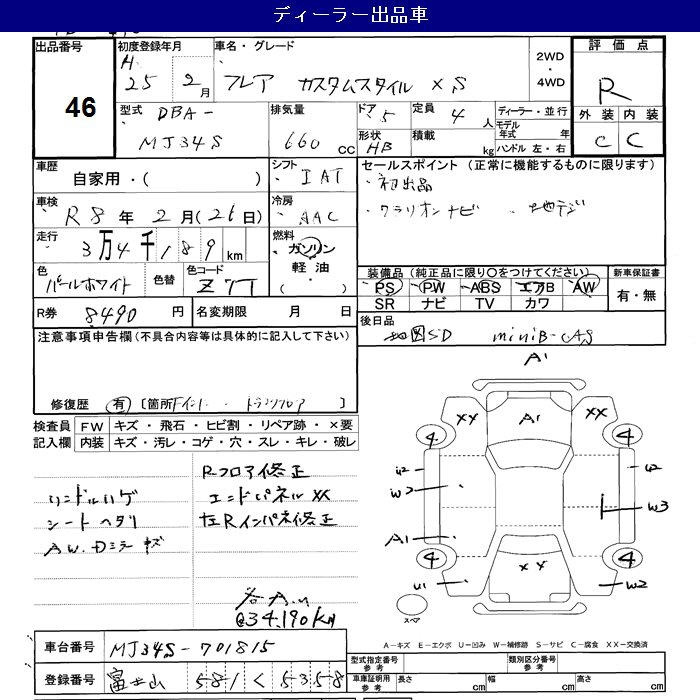 ディーラー出品車
出品番号
46
初度登録年月
H.
25 2月
車名・グレード
フレア カスタムスタイル XS
2WD
・
4WD
評価点
R
外装 内装
C C
型式 DBA-
MJ34S
排気量
660 CC
ドア 5
形状 HB
定員 4人
積載 kg
ディーラー・並行
モデル年式 年
ハンドル 左・右
車歴
自家用・( )
シフト
IAT
セールスポイント (正常に機能するものに限ります)
・初出品
・クラリオンナビ ・地デジ
車検
R8年 2月(26日)
冷房
AAC
走行
3万4千189km
燃料
ガソリン
軽油
( )
色
パールホワイト
色替
色コード
Z7T
装備品 (純正品に限り○をつけてください)
PS PW ABS エアB AW
SR ナビ TV カワ
新車保証書
有・無
R券 8490円
名変期限 月 日
後日品
地図SD miniB-CAS
注意事項申告欄(不具合内容等は具体的に記入して下さい)
修復歴 有 [箇所 ・トランクフロア ]
検査員記入欄
FW キズ・飛石・ヒビ割・リペア跡・×要
内装 キズ・汚レ・コゲ・穴・スレ・キレ・破レ
ハンドルハゲ
シートヘタリ
AW.Dミラーキズ
Rフロア修正
エンドパネルXX
左Rインパネ修正
各A.U
@34,190KM
A1
XX
A1
XX
4
4
U2
U2
W2
W3
A1
4
4
XX
U1
W2
スペア
A-キズ E-エクボ U-凹み W-補修跡 S-サビ C-腐食 XX-交換済
車台番号 MJ34S-701815
登録番号 富士山 581 く 5358
型式指定番号 参考
類別区分番号 参考
車庫証明用 参考
長さ cm
幅 cm
高さ cm